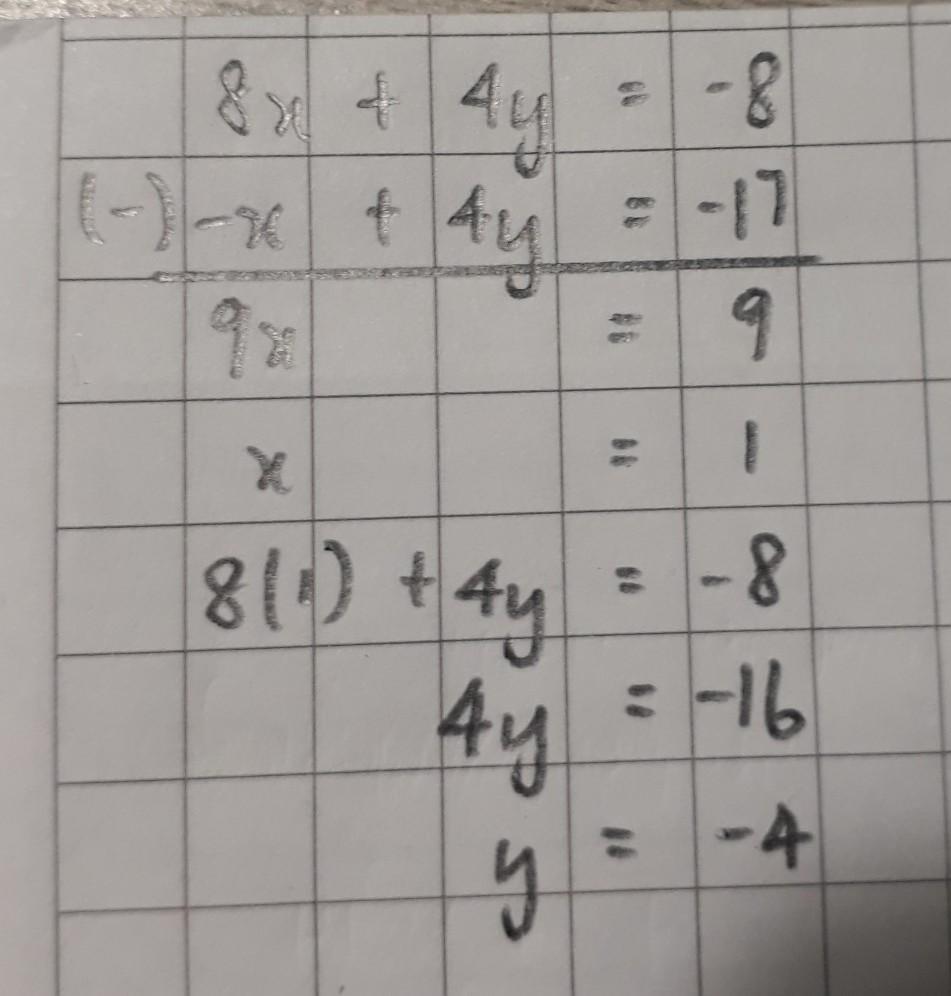 8x + 4y = -8
(-) -x + 4y = -17
9x = 9
x = 1
8(1) + 4y = -8
4y = -16
y = -4